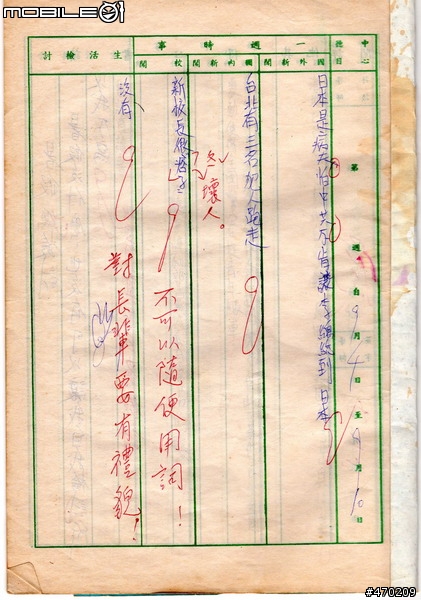 MOBILE01
中心德目
一週時事
國外新聞
國內新聞
校聞
生活檢討
第 週 自9月4日至9月10日
日本是三病犬怕中共不肯讓李總統到日本
台北有三名犯人跑走
新校長很
壞人。
沒有
不可以隨便用詞！
對長輩要有禮貌！
#470209